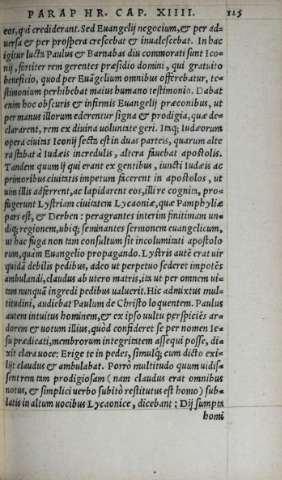 PARAPHR. CAP. XIIII. 125
eos, qui crediderant. Sed Euangelij negocium, & per ad-
uersa & per prospera crescebat & inualescebat. In hac
igitur lucta Paulus & Barnabas diu commorati sunt Ico-
nij, fortiter rem gerentes præsidio domini, qui gratuito
beneficio, quod per Euãgelium omnibus offerebatur, te-
stimonium perhibebat maius humano testimonio. Dabat
enim hoc obscuris & infirmis Euangelij præconibus, ut
per manus illorum ederentur signa & prodigia, quæ de-
clararent, rem ex diuina uoluntate geri. Itaq; Iudæorum
opera ciuitas Iconij secta est in duas parteis, quarum alte
ra stabat à Iudæis incredulis, altera fauebat apostolis.
Tandem quum ij qui erant ex gentibus, iuncti Iudæis ac
primoribus ciuitatis impetum facerent in apostolos, ut
uim illis adferrent, ac lapidarent eos, illi re cognita, pro-
fugerunt Lystriam ciuitatem Lycaoniæ, quæ Pamphyliæ
pars est, & Derben: peragrantes interim finitimam un-
diq; regionem, ubiq; seminantes sermonem euangelicum,
ut hac fuga non tam consultum sit incolumitati apostolo
rum, quàm Euangelio propagando. Lystris autẽ erat uir
quidã debilis pedibus, adeo ut perpetuo sederet impotẽs
ambulandi, claudus ab utero matris, ita ut per omnem ui
tam nunquã ingredi pedibus ualuerit. Hic admixtus mul-
titudini, audiebat Paulum de Christo loquentem. Paulus
autem intuitus hominem, & ex ipso uultu perspiciẽs ar-
dorem & uotum illius, quòd confideret se per nomen Ie-
su prædicati, membrorum integritatem assequi posse, di-
xit clara uoce: Erige te in pedes, simulq; cum dicto exi-
lijt claudus & ambulabat. Porrò multitudo quum uidis-
sent rem tam prodigiosam (nam claudus erat omnibus
notus, & simplici uerbo subitò restitutus est homo) sub-
latis in altum uocibus Lycaonice, dicebant: Dij sumpta
homi